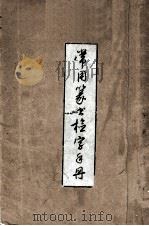 常用篆书检字手册
www.mtoou.info